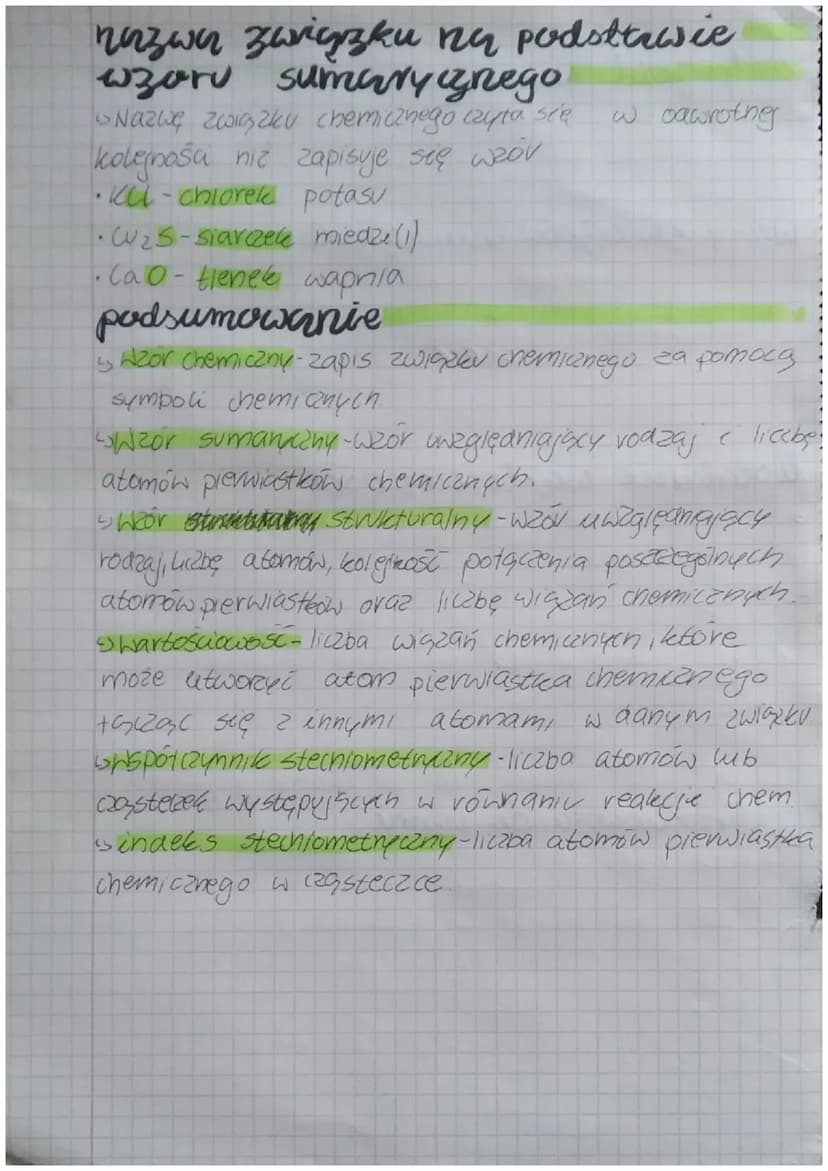 nazwa związku na podstawie
wzoru sumarycznego
↳Nazwę związku chemicznego czyta się w odwrotnej
kolejności niż zapisuje się wzór
•KCl-chlorek potasu
•Cu₂S-siarczek miedzi(I)
•CaO-tlenek wapnia
podsumowanie
↳Wzór chemiczny-zapis związku chemicznego za pomocą
symboli chemicznych.
↳Wzór sumaryczny-wzór uwzględniający rodzaj i liczbę
atomów pierwiastków chemicznych.
↳Wzór strukturalny-wzór uwzględniający
rodzaj, liczbę atomów, kolejność połączenia poszczególnych
atomów pierwiastków oraz liczbę wiązań chemicznych.
↳wartościowość-liczba wiązań chemicznych, które
może utworzyć atom pierwiastka chemicznego
łącząc się z innymi atomami w danym związku
↳współczynnik stechiometryczny-liczba atomów lub
cząsteczek występujących w równaniu reakcji chem.
↳indeks stechiometryczny-liczba atomów pierwiastka
chemicznego w cząsteczce.